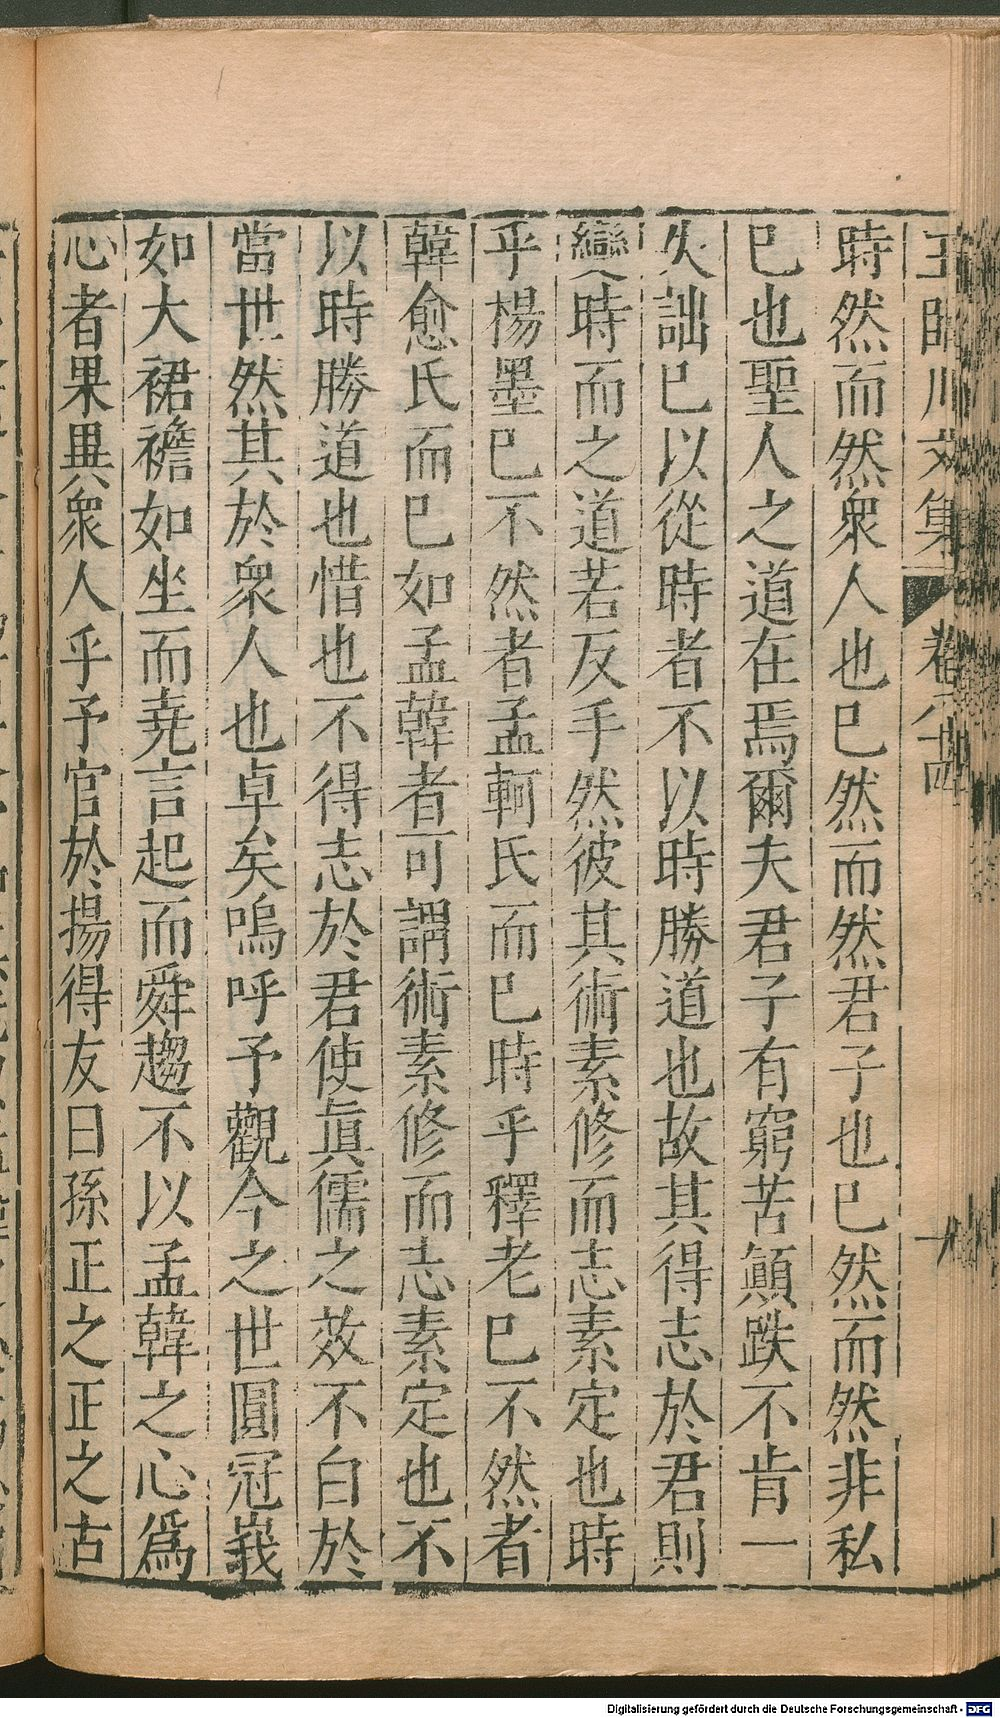 王臨川文集 卷八十四 一
時然而然衆人也已然而然君子也已然而然非私
已也聖人之道在焉爾夫君子有窮苦顛跌不肯一
失詘已以從時者不以時勝道也故其得志於君則
變時而之道若反手然彼其術素修而志素定也時
乎楊墨已不然者孟軻氏而已時乎釋老已不然者
韓愈氏而已如孟韓者可謂術素修而志素定也不
以時勝道也惜也不得志於君使眞儒之效不白於
當世然其於衆人也卓矣嗚呼予觀今之世圓冠峩
如大裙襜如坐而堯言起而舜趨不以孟韓之心爲
心者果異衆人乎予官於揚得友曰孫正之正之古
Digitalisierung gefördert durch die Deutsche Forschungsgemeinschaft - DFG